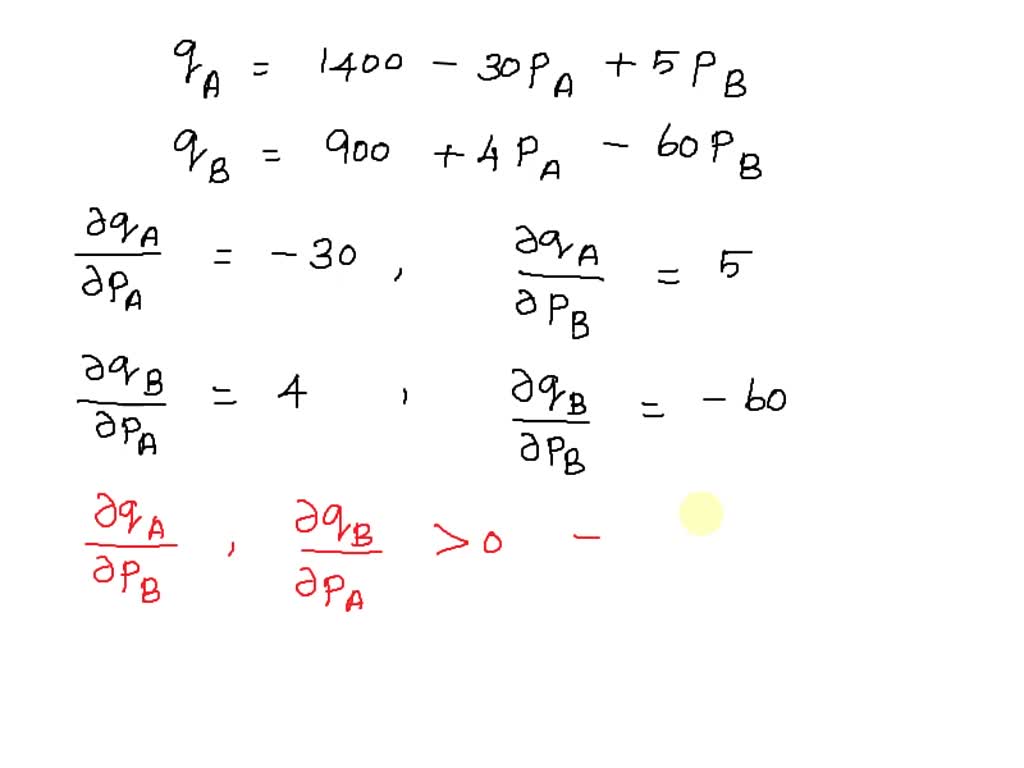 q_A = 1400 - 30P_A + 5P_B
q_B = 900 + 4P_A - 60P_B
∂q_A/∂P_A = -30, ∂q_A/∂P_B = 5
∂q_B/∂P_A = 4, ∂q_B/∂P_B = -60
∂q_A/∂P_B, ∂q_B/∂P_A > 0 -